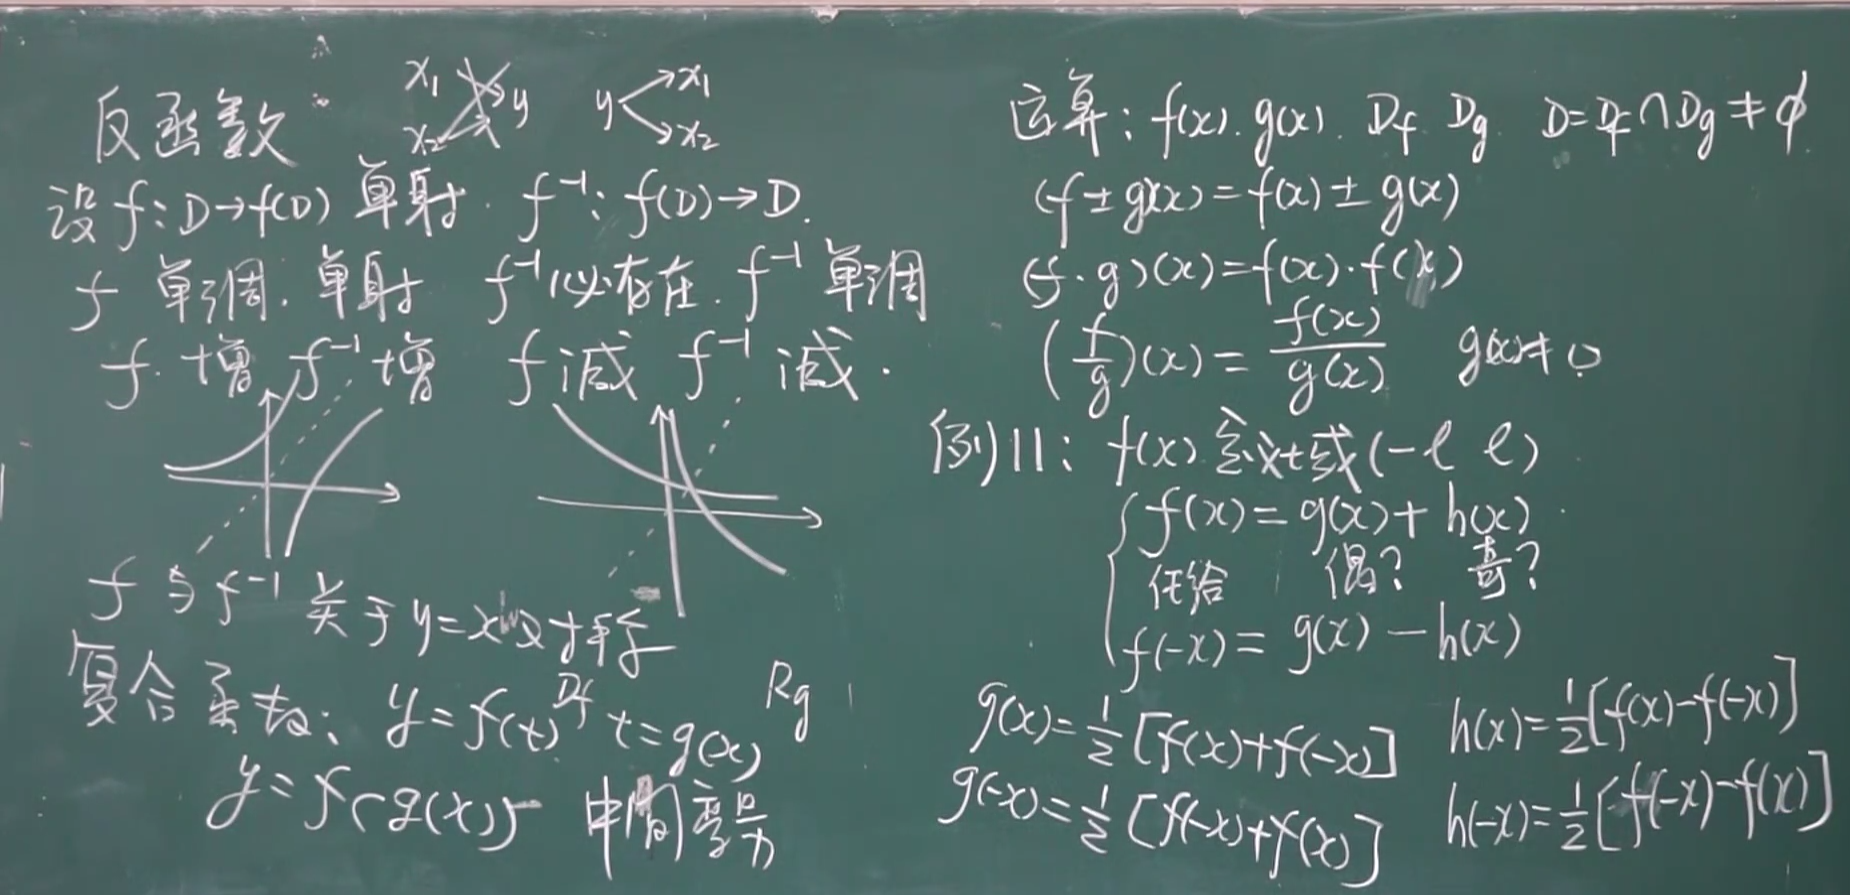 反函数 x₁ x₂ y y x₁ x₂
设 f:D→f(D) 单射. f⁻¹: f(D)→D.
f 单调. 单射 f⁻¹必存在. f⁻¹ 单调
f 增 f⁻¹ 增 f 减 f⁻¹ 减.
f 与 f⁻¹ 关于 y=x 对称
复合函数: y=f(t) Df t=g(x) Rg
y=f(g(x)) 中间变量
运算: f(x). g(x). Df Dg D=Df∩Dg≠∅
(f±g)(x)=f(x)±g(x)
(f·g)(x)=f(x)·f(x)
(f/g)(x)=f(x)/g(x) g(x)≠0
例11: f(x) 定义域(-l l)
{f(x)=g(x)+h(x)
任给 偶? 奇?
f(-x)=g(x)-h(x)
g(x)=1/2[f(x)+f(-x)] h(x)=1/2[f(x)-f(-x)]
g(-x)=1/2[f(-x)+f(x)] h(-x)=1/2[f(-x)-f(x)]